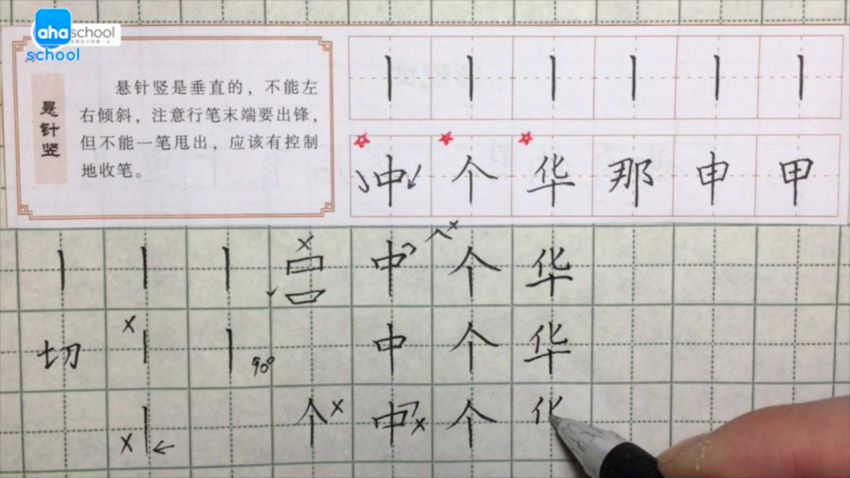 ahaschool
school
悬针竖
悬针竖是垂直的，不能左
右倾斜，注意行笔末端要出锋，
但不能一笔甩出，应该有控制
地收笔。
中 个 华 那 申 甲
中 个 华
切 90° 中 个 华
个 中 个